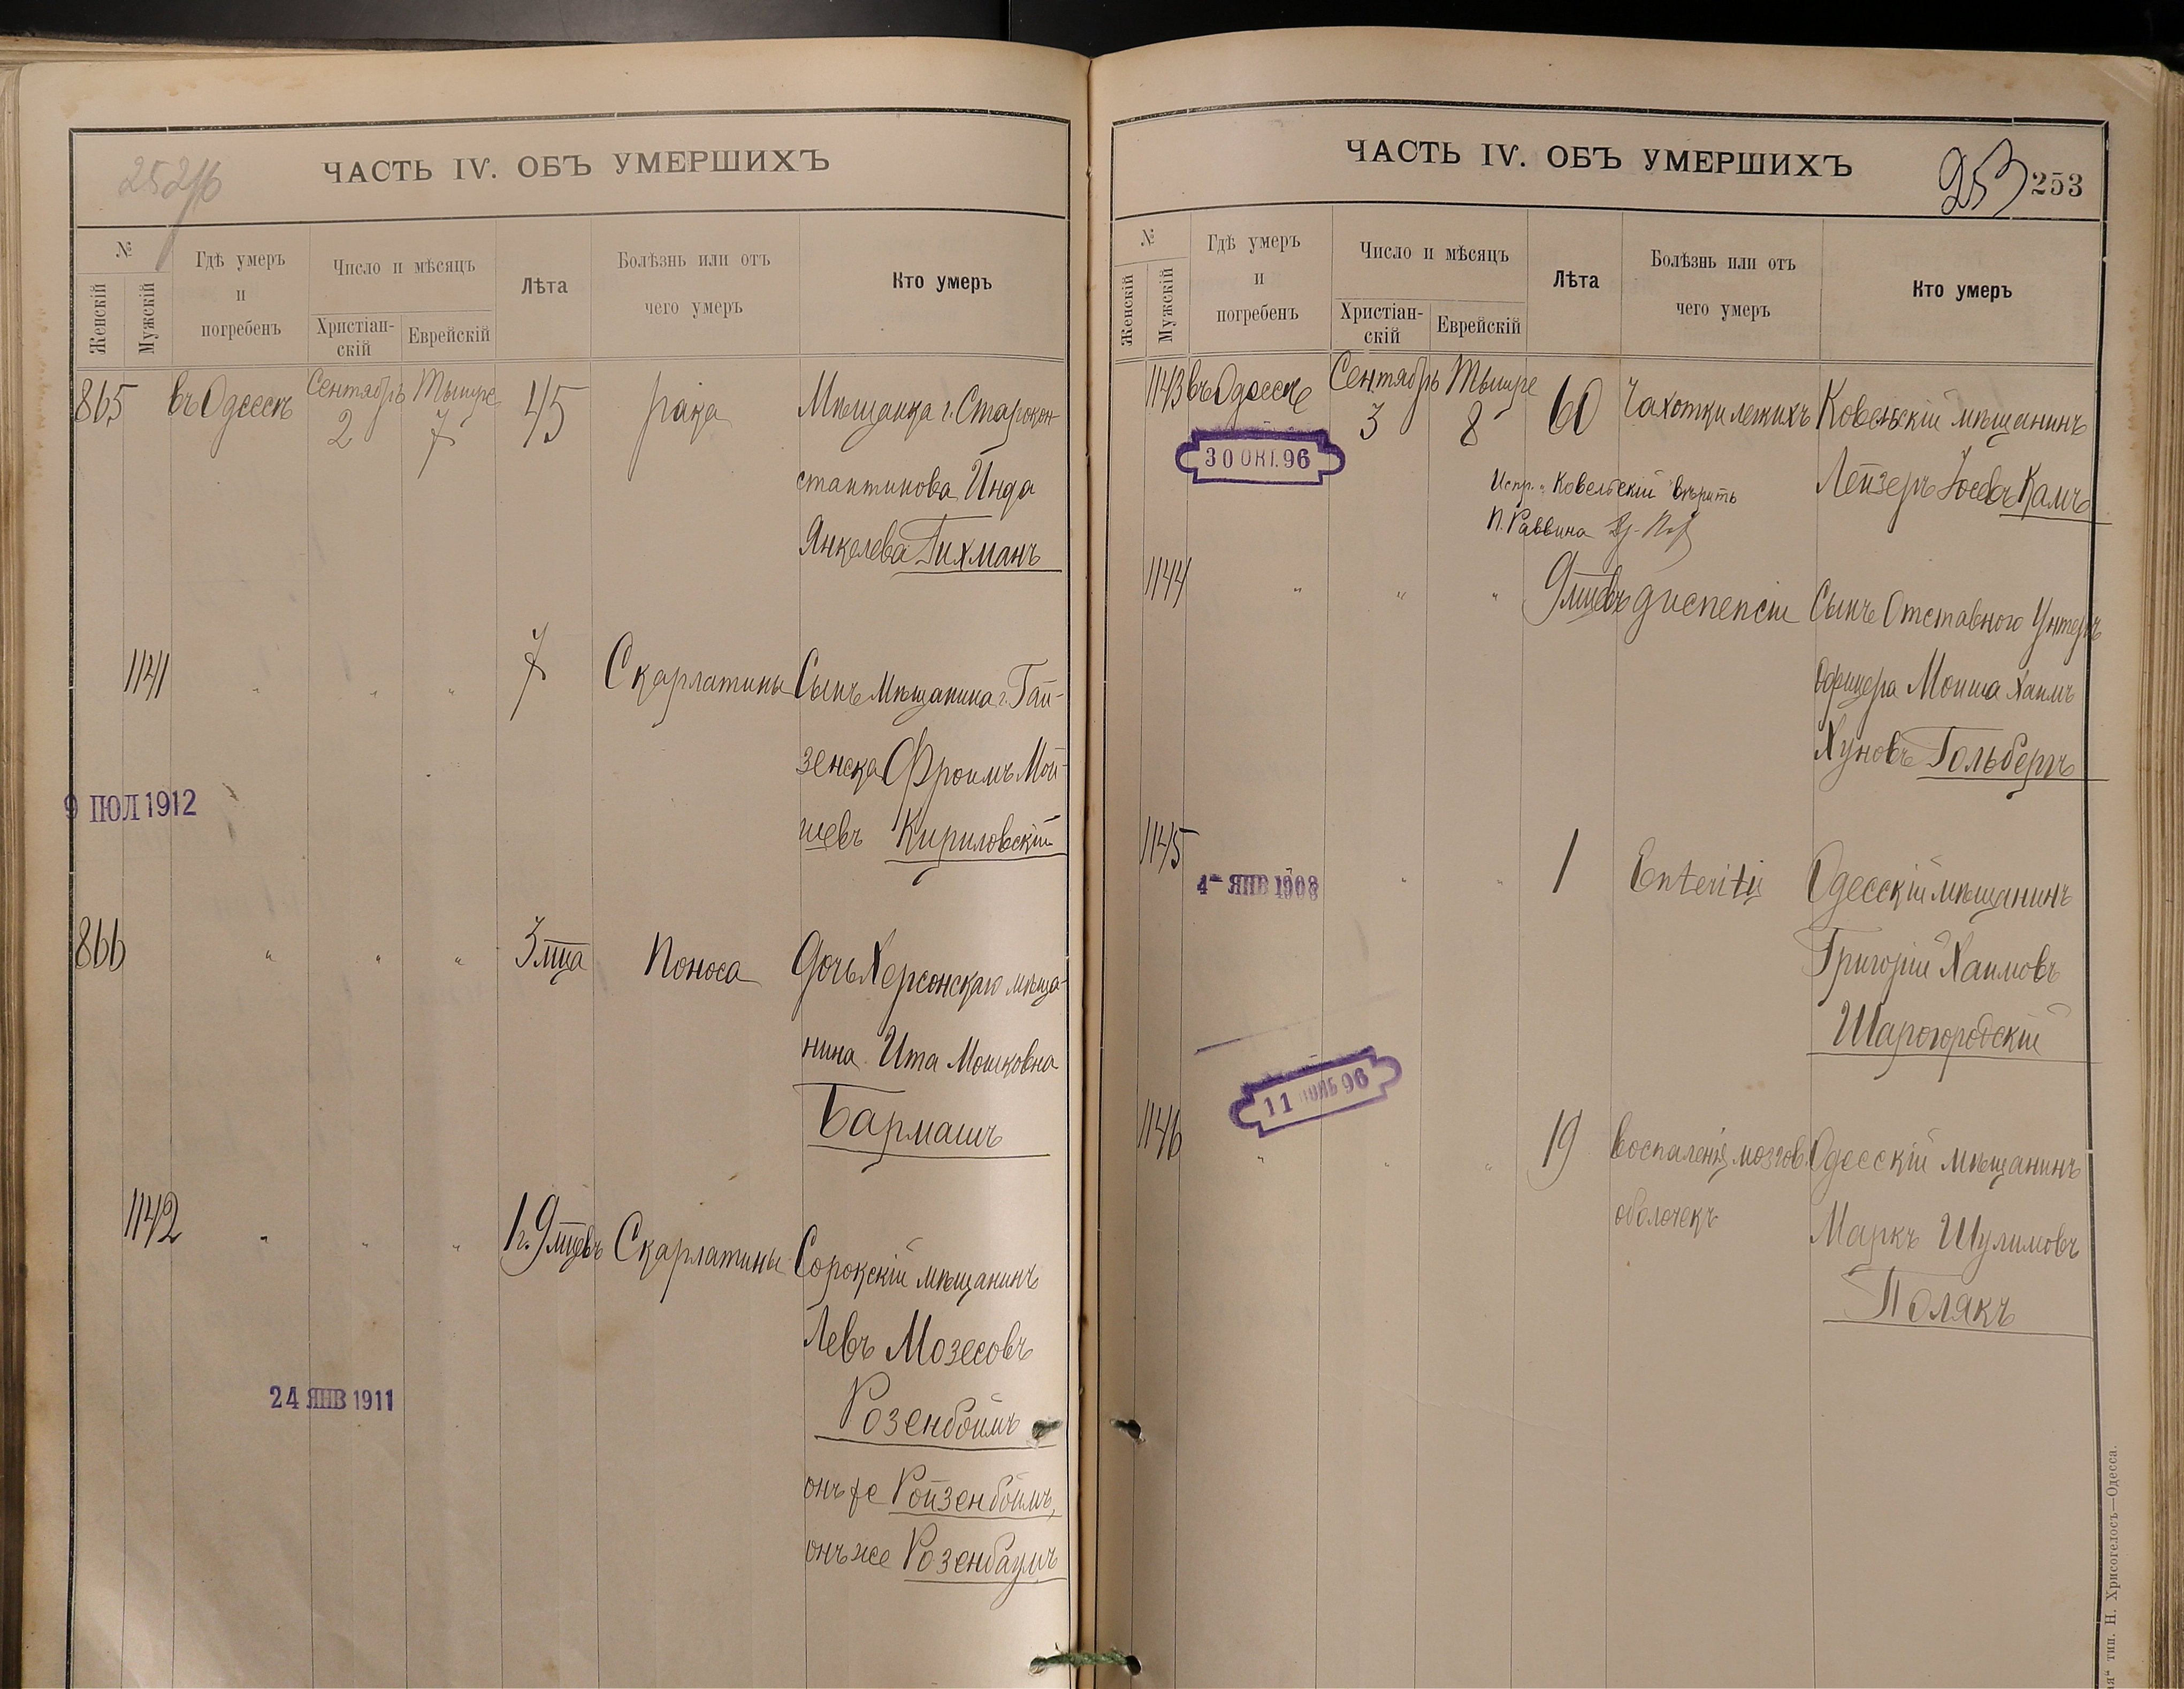 252/б
ЧАСТЬ IV. ОБЪ УМЕРШИХЪ
№
Женскій
Мужскій
Гдѣ умеръ
и
погребенъ
Число и мѣсяцъ
Христіан-
скій
Еврейскій
Лѣта
Болѣзнь или отъ
чего умеръ
Кто умеръ
865 въ Одессѣ Сентябрь 2 Тышре 7 45 рака Мѣщанка г. Старокон-
стантинова Инда
Янкелева Гихманъ
1141 " " " 7 Скарлатины Сынъ Мѣщанина г. Гай-
зенска Фроимъ Мой-
шевъ Кириловскій
9 ІЮЛ 1912
866 " " " 3 м̅ца Поноса Дочь Херсонскаго мѣща-
нина Ита Мошковна
Бармашъ
1142 " " " 1 г. 9 мцевъ Скарлатины Сорокскій мѣщанинъ
Левъ Мозесовъ
Розенбоймъ
24 ЯНВ 1911
онъ же Ройзенбоймъ,
онъ же Розенбаумъ
ЧАСТЬ IV. ОБЪ УМЕРШИХЪ
253 253
№
Женскій
Мужскій
Гдѣ умеръ
и
погребенъ
Число и мѣсяцъ
Христіан-
скій
Еврейскій
Лѣта
Болѣзнь или отъ
чего умеръ
Кто умеръ
1143 въ Одессѣ Сентябрь 3 Тышре 8 60 Чахотки легкихъ Ковенскій мѣщанинъ
30 ОКТ. 96
Лейзеръ Іосевъ Камъ
Испр. "Ковельскій" вѣрить
П. Раввина
1144 " " " 9 мцевъ диспепсіи Сынъ Отставного Унтеръ
Офицера Моиша Хаимъ
Хуновъ Гольбергъ
1145 " " 1 Enteritis Одесскій мѣщанинъ
4 ЯНВ 1908
Григорій Хаимовъ
Шарогородскій
11 96
1146 " " " 19 Воспаленія мозгов. Одесскій мѣщанинъ
оболочекъ
Маркъ Шулимовъ
Полякъ
тип. Н. Хрисогелосъ—Одесса.